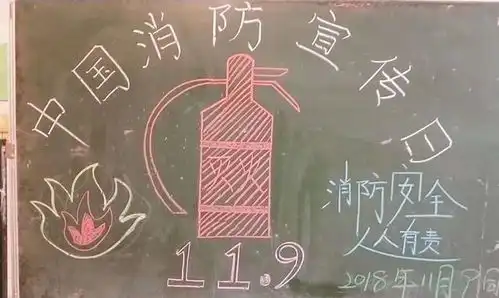 中国消防宣传日
灭火
11.9
消防安全
人人有责
2018年11月9日